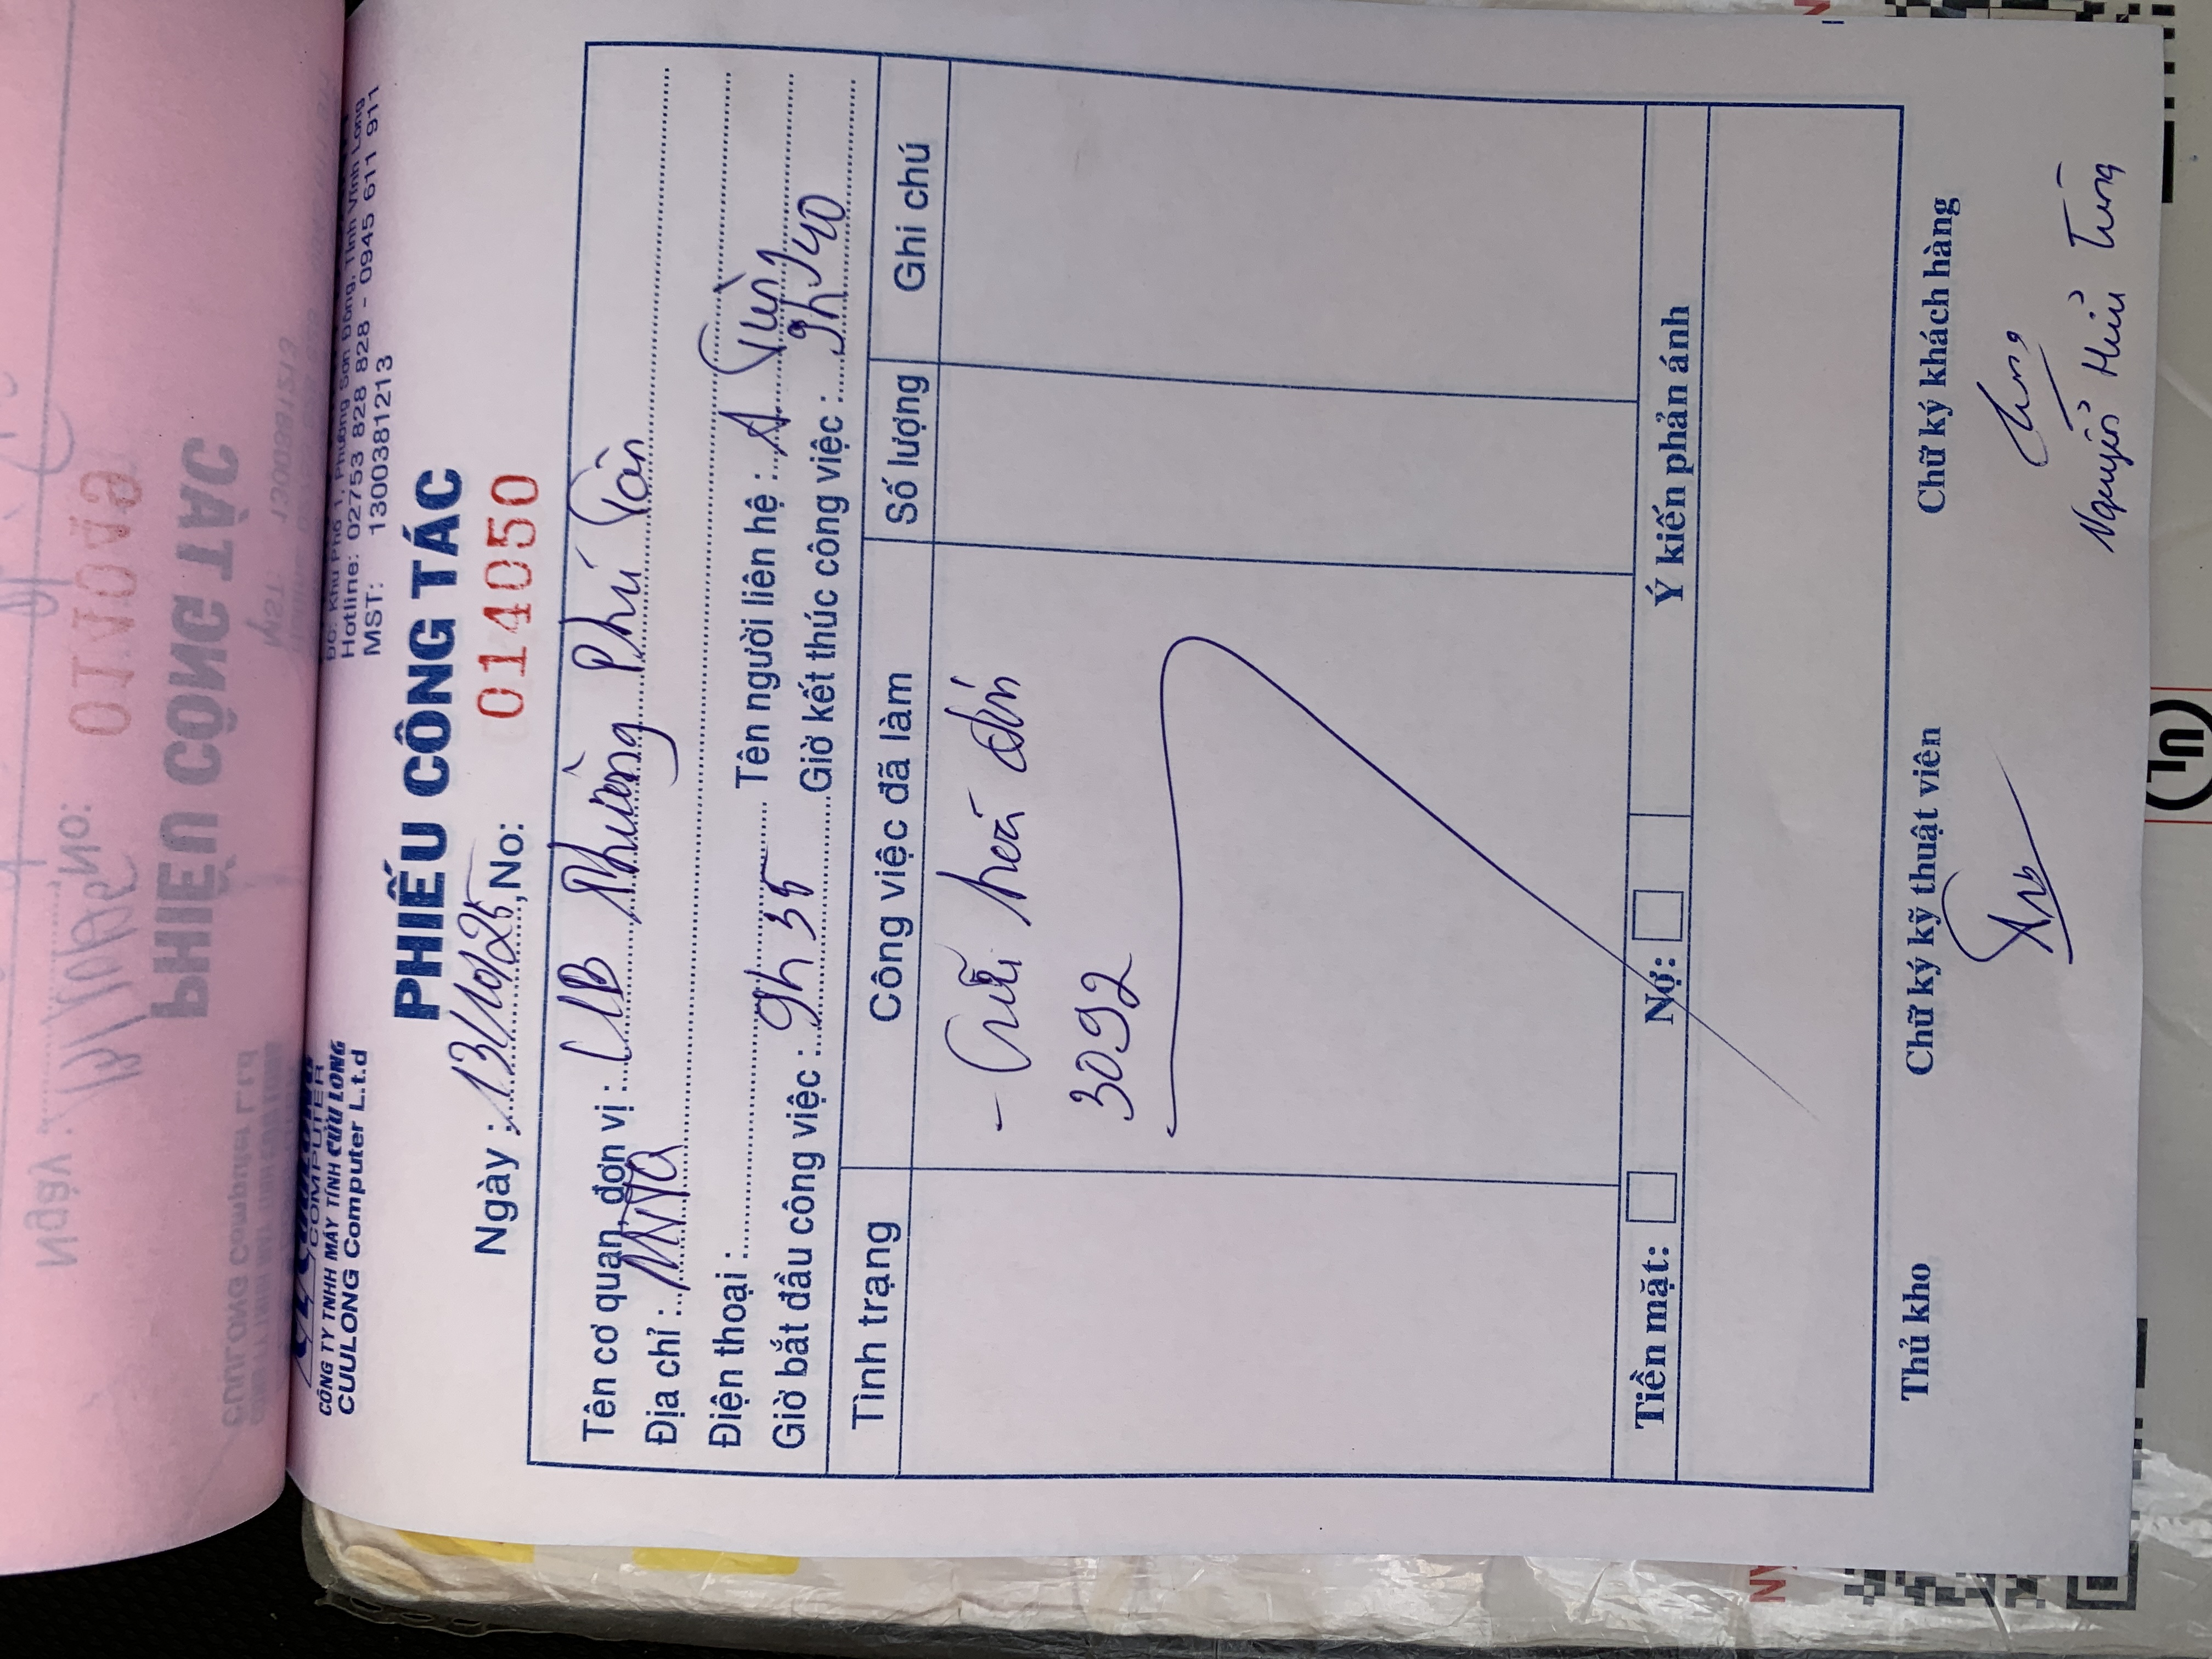 COMPUTER
CÔNG TY TNHH MÁY TÍNH CỬU LONG
CUULONG Computer L.t.d
ĐC: Khu Phố 1, Phường Sơn Đông, Tỉnh Vĩnh Long
Hotline: 02753 828 828 - 0945 611 911
MST: 1300381213
PHIẾU CÔNG TÁC
Ngày : 13/10/25, No: 014050
Tên cơ quan, đơn vị : Phường Phú Tân
Địa chỉ :
Điện thoại : Tên người liên hệ : A Tùng
Giờ bắt đầu công việc : 9h35 Giờ kết thúc công việc : 9h40
Tình trạng Công việc đã làm Số lượng Ghi chú
- Gửi hoá đơn
3092
Tiền mặt: Nợ: Ý kiến phản ánh
Thủ kho Chữ ký kỹ thuật viên Chữ ký khách hàng
Tùng